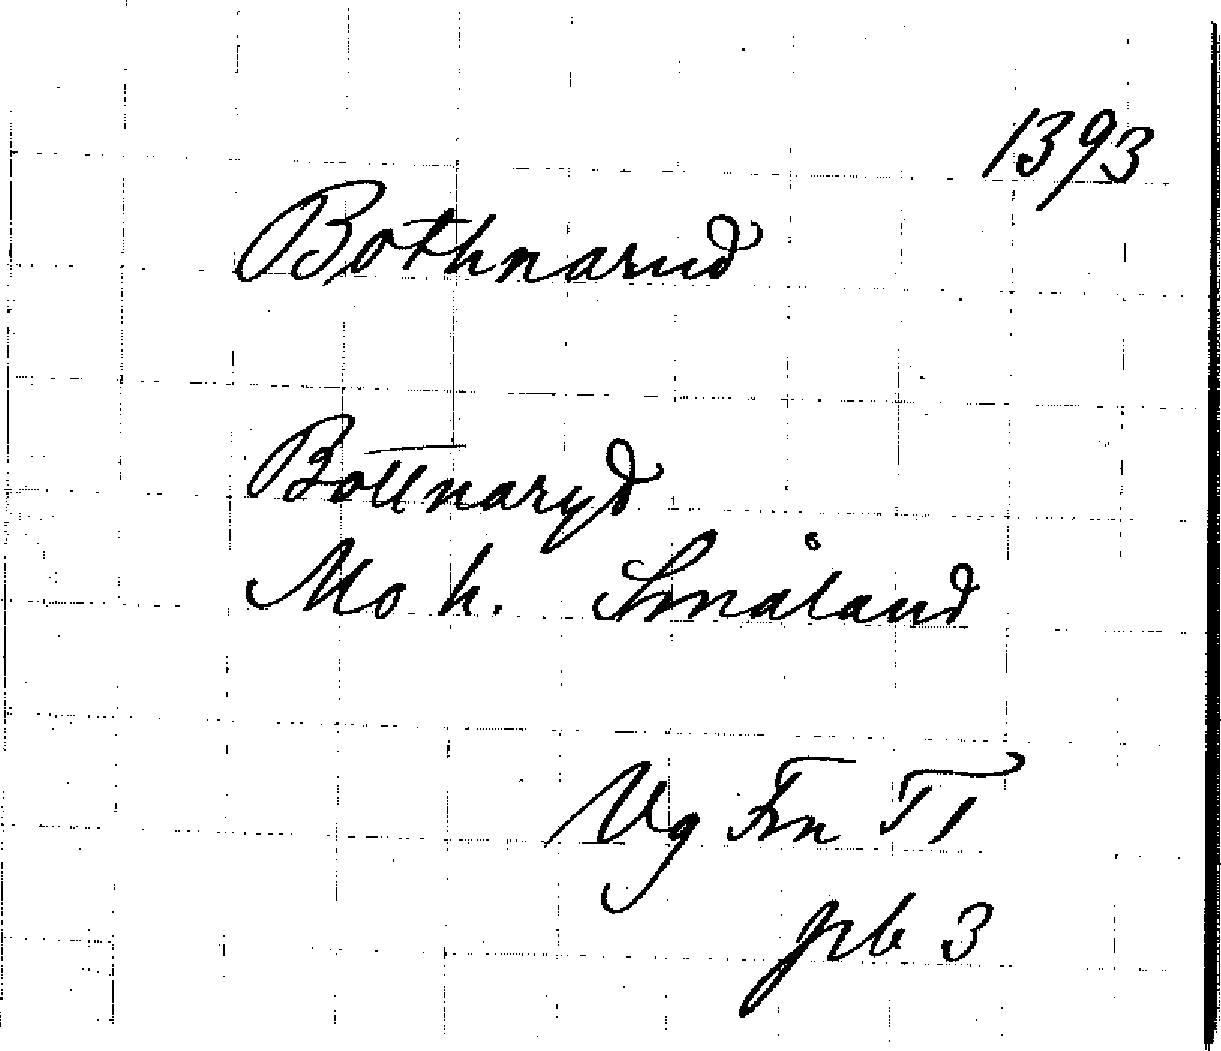 1393
Bothnarud
Bottnaryd
Mo h. Småland
Vg Fn II
prb 3